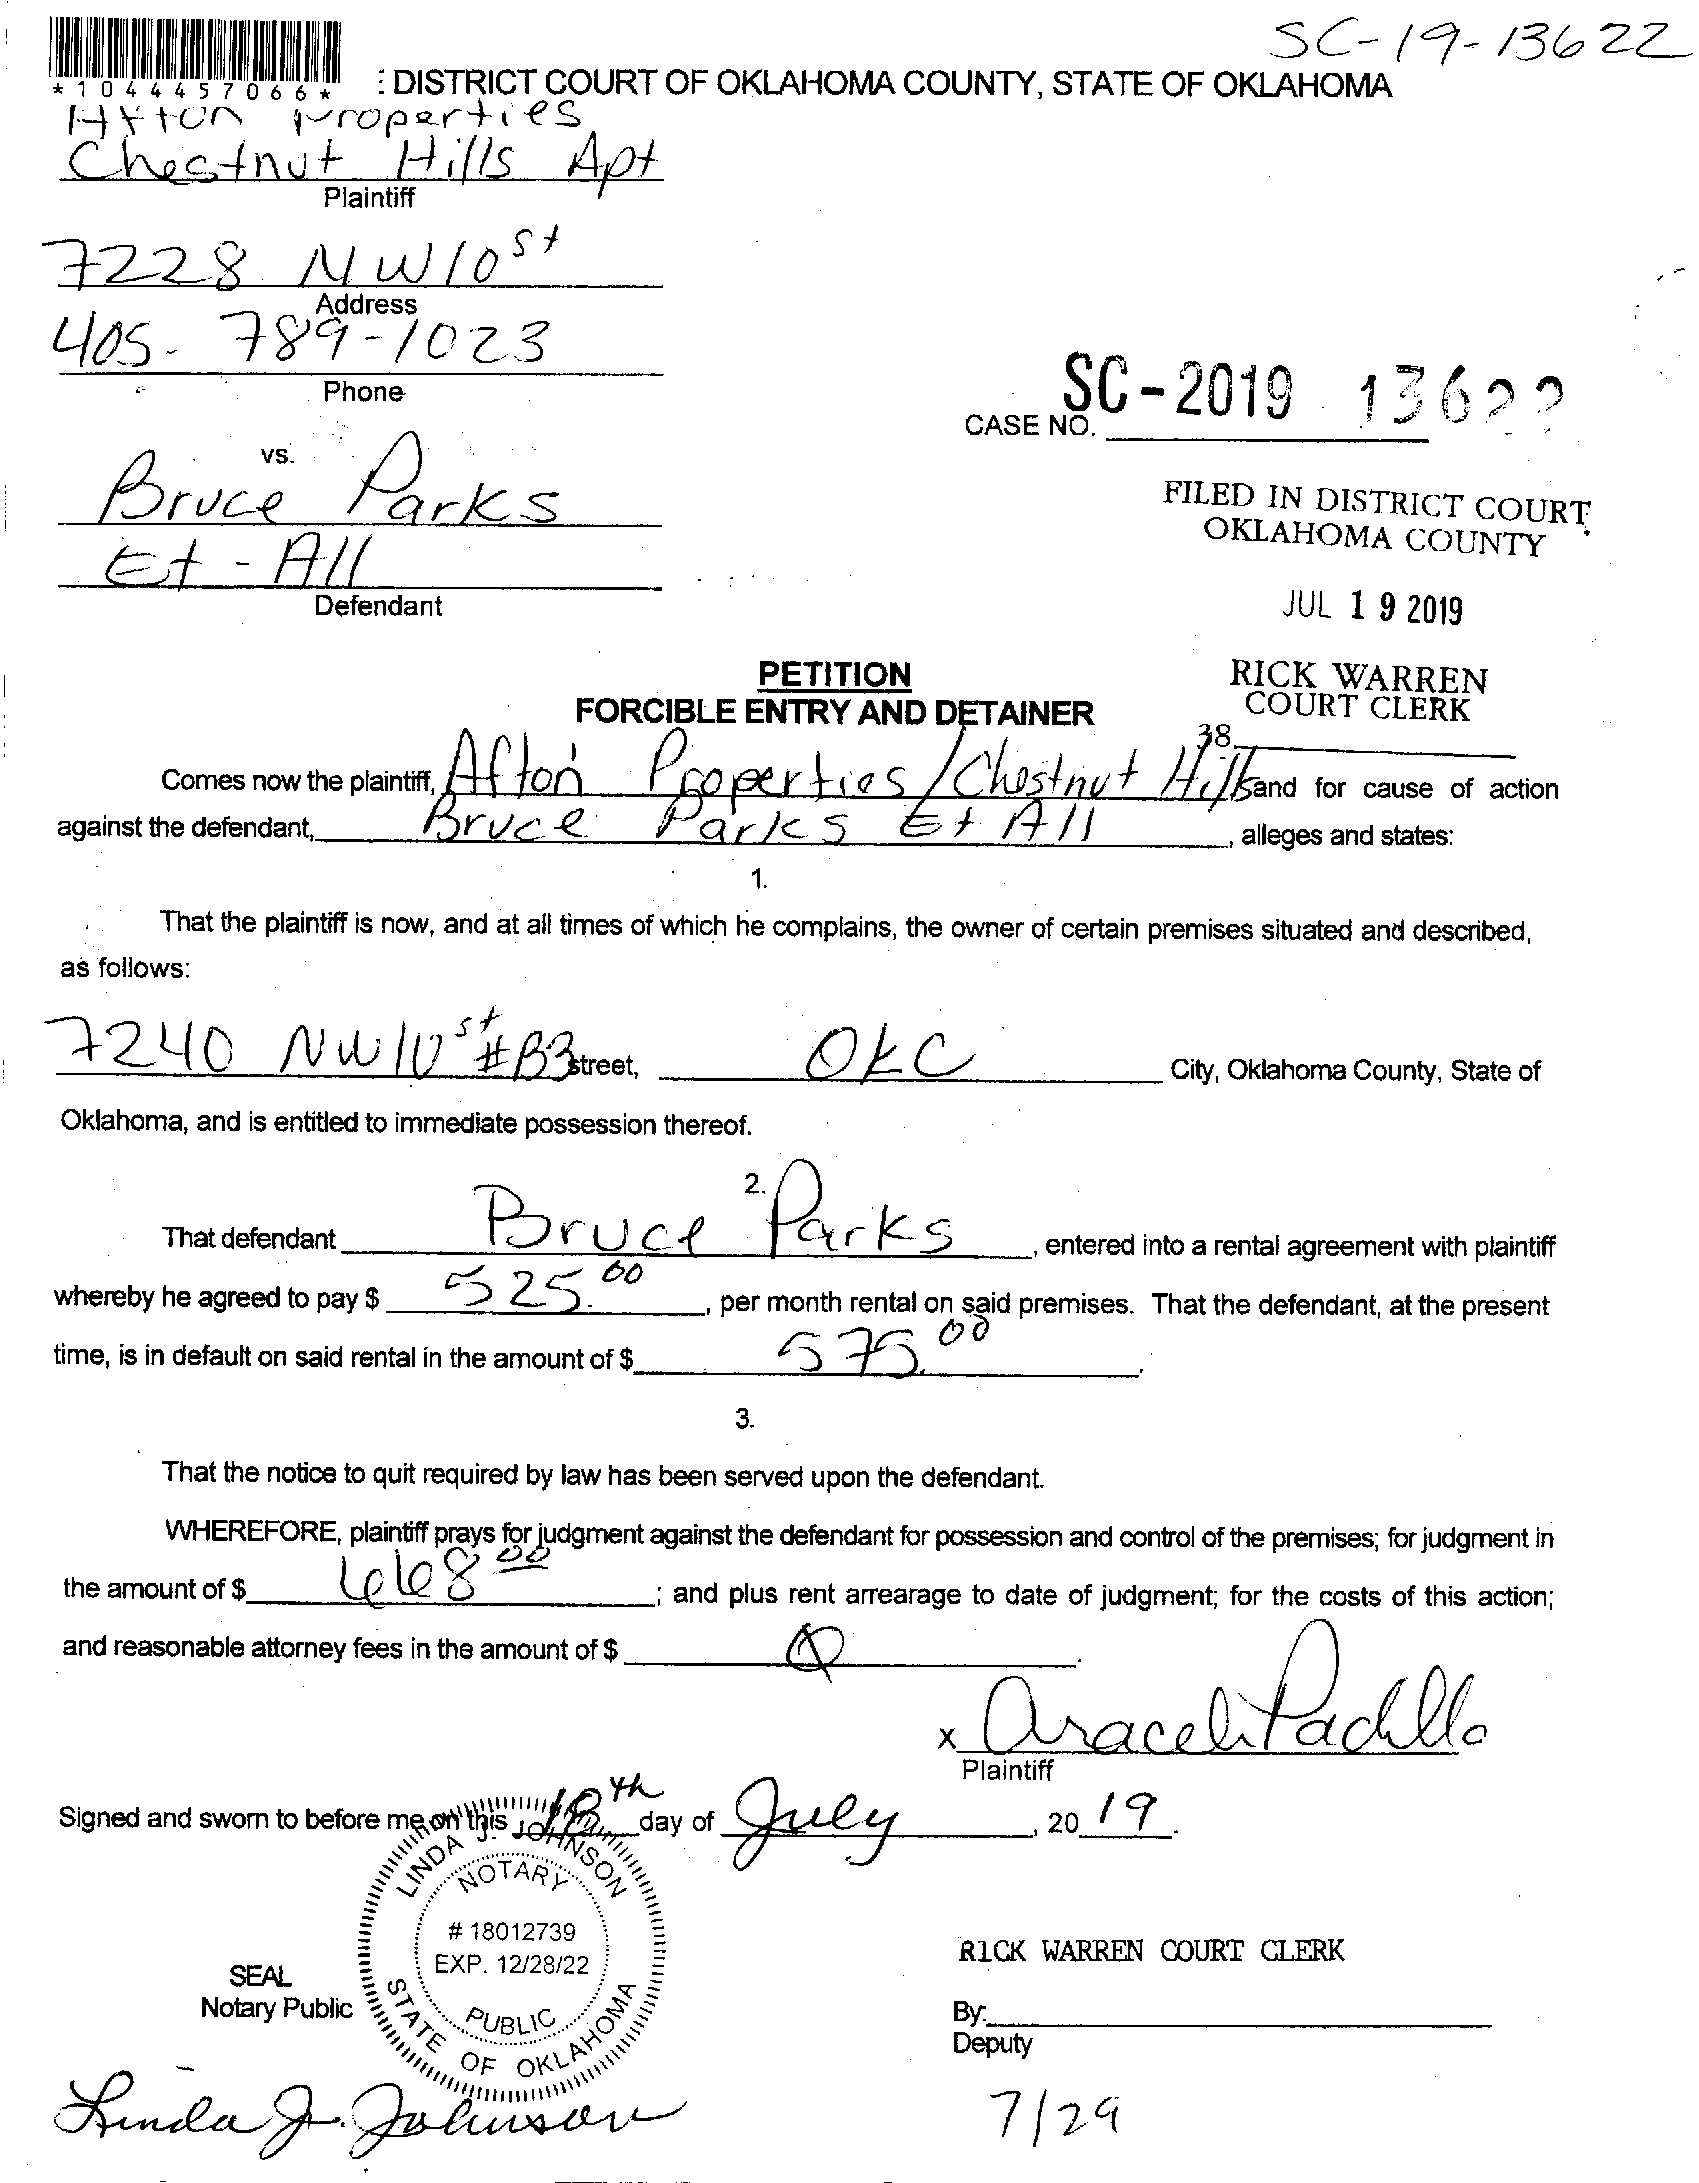 SC-19-13622
*1044457066*
: DISTRICT COURT OF OKLAHOMA COUNTY, STATE OF OKLAHOMA
Afton Properties
Chestnut Hills Apt
Plaintiff
7228 NW 10 st
Address
405-789-1023
Phone
SC-2019 13622
CASE NO.
vs.
Bruce Parks
Et-All
Defendant
FILED IN DISTRICT COURT
OKLAHOMA COUNTY
JUL 19 2019
RICK WARREN
COURT CLERK
38
PETITION
FORCIBLE ENTRY AND DETAINER
Comes now the plaintiff, Afton Properties/Chestnut Hills and for cause of action
against the defendant, Bruce Parks Et All, alleges and states:
1.
That the plaintiff is now, and at all times of which he complains, the owner of certain premises situated and described,
as follows:
7240 NW 10 st #B3 street, OKC City, Oklahoma County, State of
Oklahoma, and is entitled to immediate possession thereof.
2.
That defendant Bruce Parks, entered into a rental agreement with plaintiff
whereby he agreed to pay $ 525.00, per month rental on said premises. That the defendant, at the present
time, is in default on said rental in the amount of $ 575.00.
3.
That the notice to quit required by law has been served upon the defendant.
WHEREFORE, plaintiff prays for judgment against the defendant for possession and control of the premises; for judgment in
the amount of $ 668 00; and plus rent arrearage to date of judgment; for the costs of this action;
and reasonable attorney fees in the amount of $
x Araceli Padilla
Plaintiff
Signed and sworn to before me on this 18th day of July, 2019.
LINDA J. JOHNSON
NOTARY
# 18012739
EXP. 12/28/22
PUBLIC
STATE OF OKLAHOMA
SEAL
Notary Public
RICK WARREN COURT CLERK
By:
Deputy
Linda J. Johnson
7/29